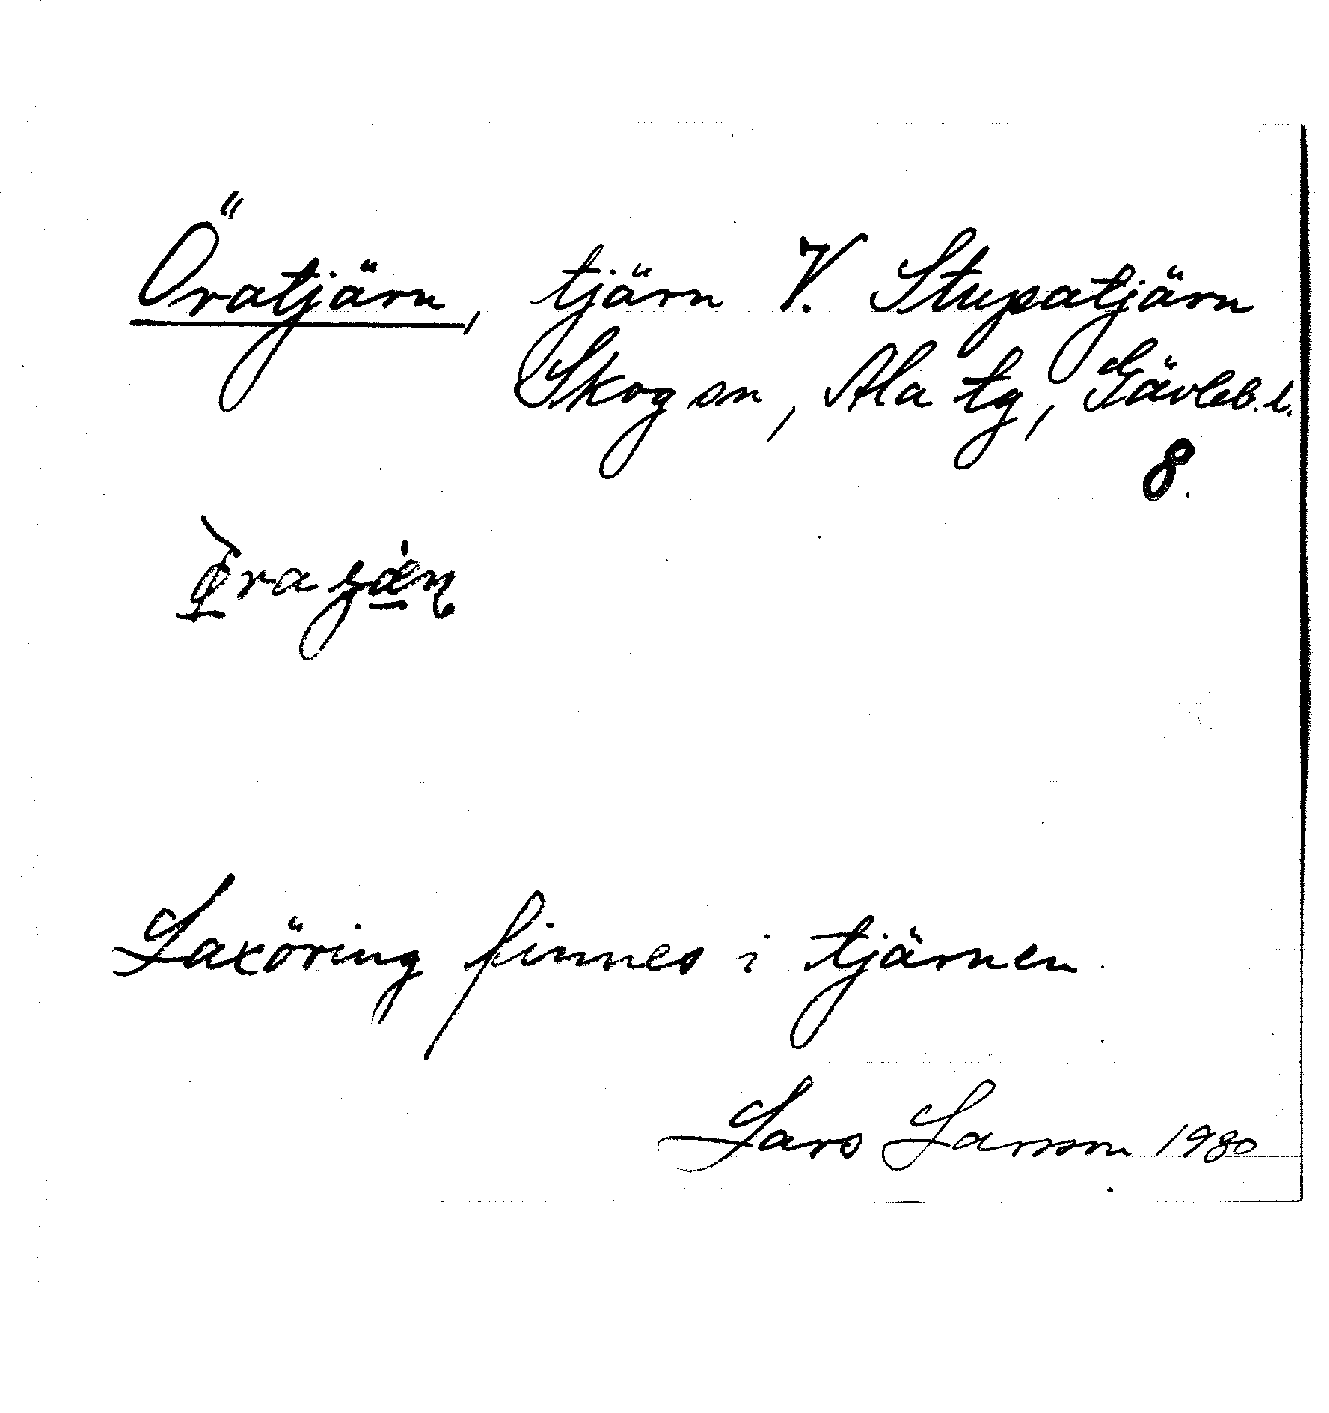 Öratjärn, tjärn V. Stupatjärn
Skogen, Ala tg, Gävleb. l.
8.
Laxöring finnes i tjärnen
Lars Larsson 1980